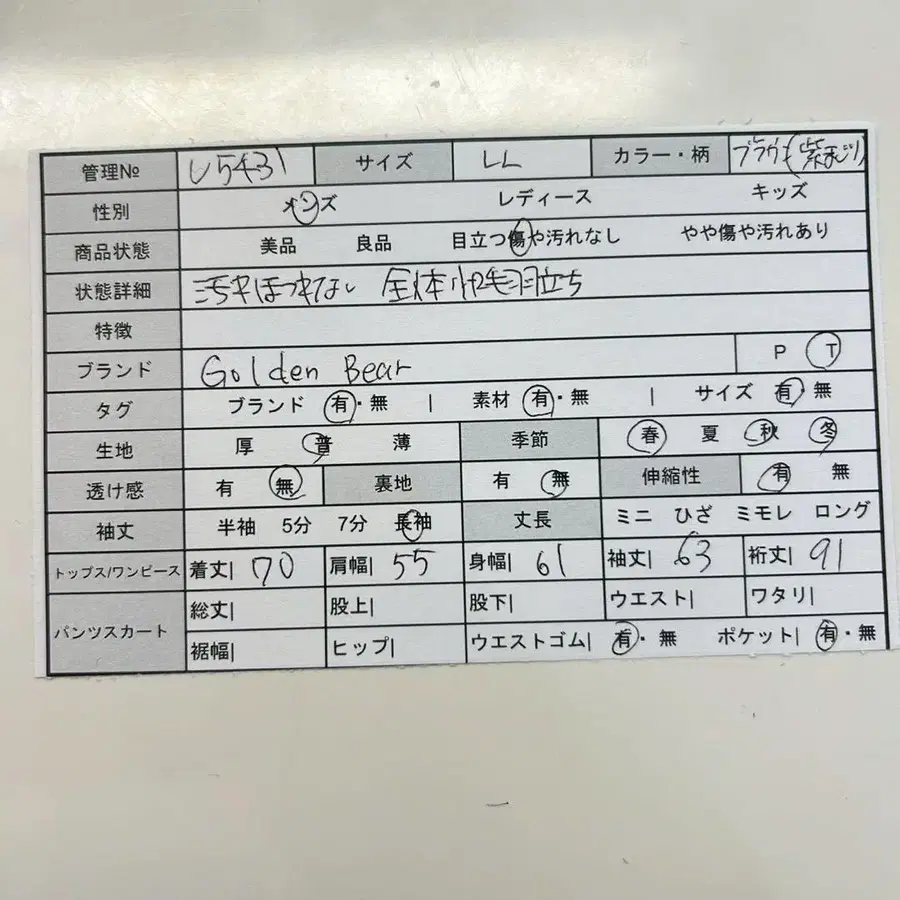 管理№ し5431 サイズ LL カラー・柄 ブラウン(紫まじり)
性別 メンズ レディース キッズ
商品状態 美品 良品 目立つ傷や汚れなし やや傷や汚れあり
状態詳細 汚れほつれなし 全体やや毛羽立ち
特徴
ブランド Golden Bear P T
タグ ブランド 有・無 | 素材 有・無 | サイズ 有・無
生地 厚 普 薄 季節 春 夏 秋 冬
透け感 有 無 裏地 有 無 伸縮性 有 無
袖丈 半袖 5分 7分 長袖 丈長 ミニ ひざ ミモレ ロング
トップス/ワンピース 着丈| 70 肩幅| 55 身幅| 61 袖丈| 63 裄丈| 91
パンツスカート 総丈| 股上| 股下| ウエスト| ワタリ|
裾幅| ヒップ| ウエストゴム| 有・無 ポケット| 有・無